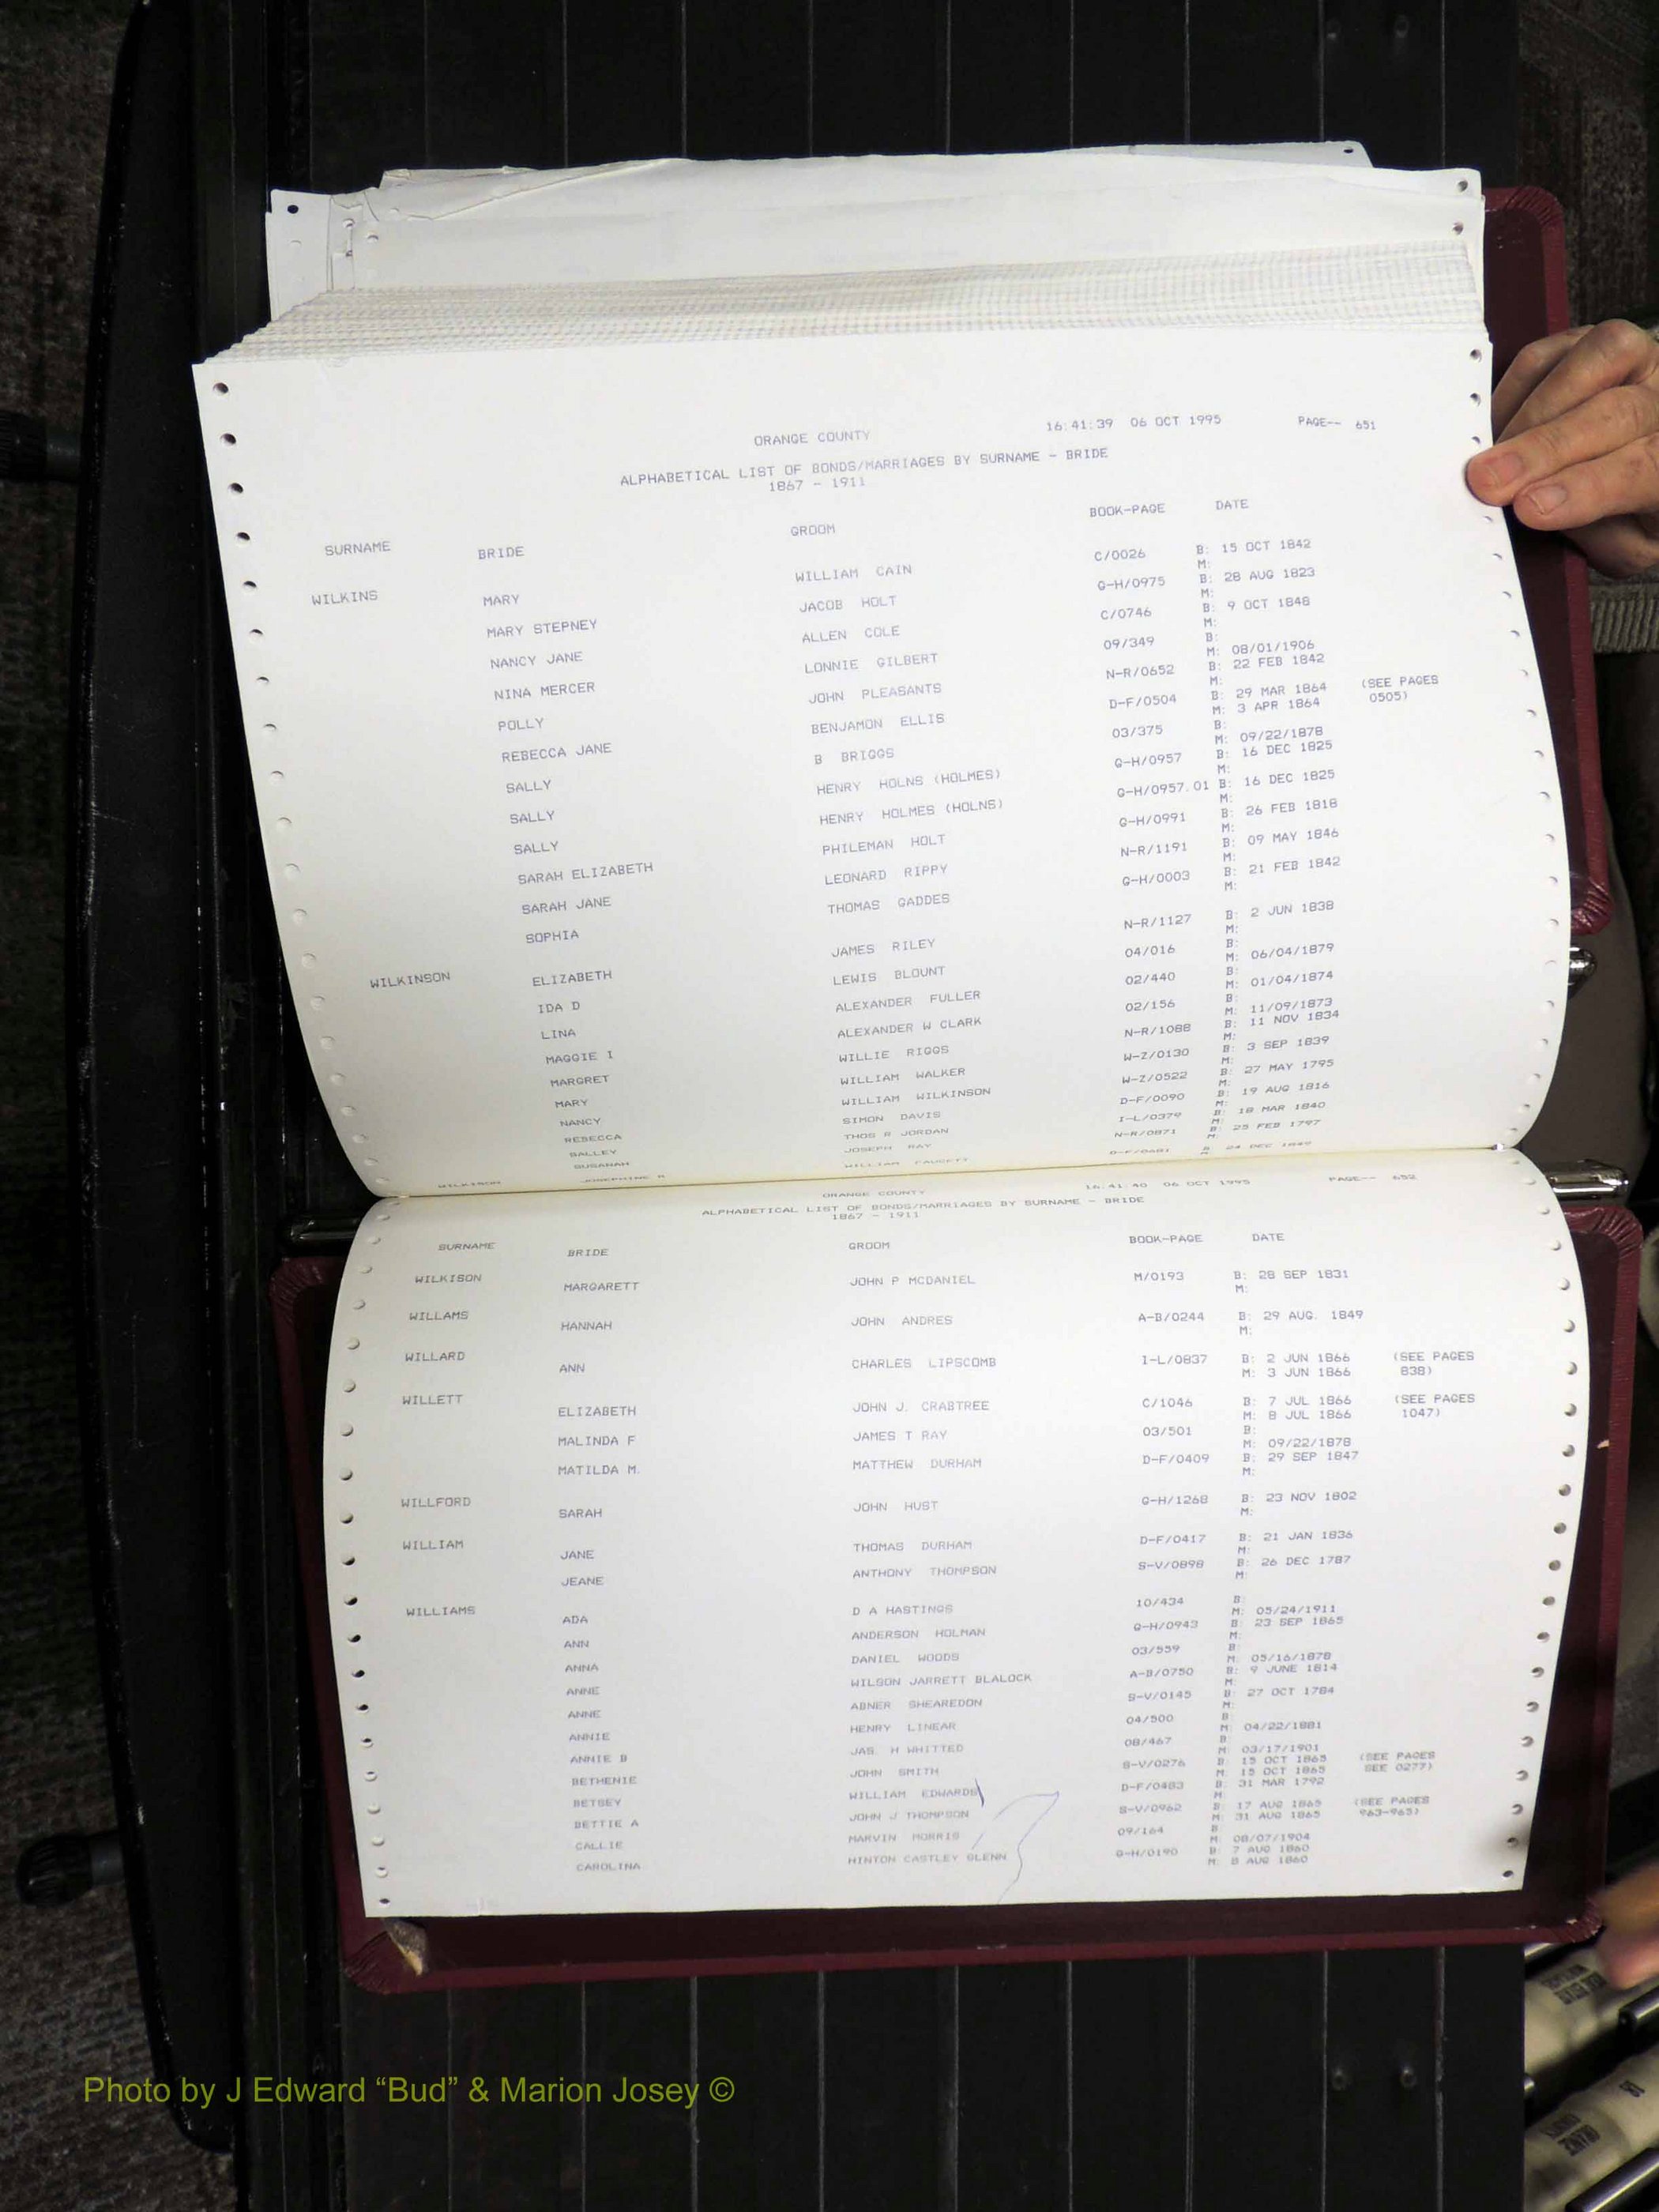 ORANGE COUNTY 16:41:39 06 OCT 1995 PAGE-- 651
ALPHABETICAL LIST OF BONDS/MARRIAGES BY SURNAME - BRIDE
1867 - 1911
SURNAME BRIDE GROOM BOOK-PAGE DATE
WILKINS MARY WILLIAM CAIN C/0026 B: 15 OCT 1842
M:
MARY STEPNEY JACOB HOLT G-H/0975 B: 28 AUG 1823
M:
NANCY JANE ALLEN COLE C/0746 B: 9 OCT 1848
M:
NINA MERCER LONNIE GILBERT 09/349 B:
M: 08/01/1906
POLLY JOHN PLEASANTS N-R/0652 B: 22 FEB 1842
M:
REBECCA JANE BENJAMON ELLIS D-F/0504 B: 29 MAR 1864 (SEE PAGES
M: 3 APR 1864 0505)
SALLY B BRIGGS 03/375 B:
M: 09/22/1878
SALLY HENRY HOLNS (HOLMES) G-H/0957 B: 16 DEC 1825
M:
SALLY HENRY HOLMES (HOLNS) G-H/0957.01 B: 16 DEC 1825
M:
SARAH ELIZABETH PHILEMAN HOLT G-H/0991 B: 26 FEB 1818
M:
SARAH JANE LEONARD RIPPY N-R/1191 B: 09 MAY 1846
M:
SOPHIA THOMAS GADDES G-H/0003 B: 21 FEB 1842
M:
WILKINSON ELIZABETH JAMES RILEY N-R/1127 B: 2 JUN 1838
M:
IDA D LEWIS BLOUNT 04/016 B:
M: 06/04/1879
LINA ALEXANDER FULLER 02/440 B:
M: 01/04/1874
MAGGIE I ALEXANDER W CLARK 02/156 B:
M: 11/09/1873
MARGRET WILLIE RIGGS N-R/1088 B: 11 NOV 1834
M:
MARY WILLIAM WALKER W-Z/0130 B: 3 SEP 1839
M:
NANCY WILLIAM WILKINSON W-Z/0522 B: 27 MAY 1795
M:
REBECCA SIMON DAVIS D-F/0090 B: 19 AUG 1816
M:
SALLEY THOS R JORDAN I-L/0379 B: 18 MAR 1840
M:
SUSANAH JOSEPH RAY N-R/0871 B: 25 FEB 1797
M:
WILKISON JOSEPHINE R WILLIAM FAUCETT D-F/0681 B: 24 DEC 1849
ORANGE COUNTY 16:41:40 06 OCT 1995 PAGE-- 652
ALPHABETICAL LIST OF BONDS/MARRIAGES BY SURNAME - BRIDE
1867 - 1911
SURNAME BRIDE GROOM BOOK-PAGE DATE
WILKISON MARGARETT JOHN P MCDANIEL M/0193 B: 28 SEP 1831
M:
WILLAMS HANNAH JOHN ANDRES A-B/0244 B: 29 AUG. 1849
M:
WILLARD ANN CHARLES LIPSCOMB I-L/0837 B: 2 JUN 1866 (SEE PAGES
M: 3 JUN 1866 838)
WILLETT ELIZABETH JOHN J. CRABTREE C/1046 B: 7 JUL 1866 (SEE PAGES
M: 8 JUL 1866 1047)
MALINDA F JAMES T RAY 03/501 B:
M: 09/22/1878
MATILDA M. MATTHEW DURHAM D-F/0409 B: 29 SEP 1847
M:
WILLFORD SARAH JOHN HUST G-H/1268 B: 23 NOV 1802
M:
WILLIAM JANE THOMAS DURHAM D-F/0417 B: 21 JAN 1836
M:
JEANE ANTHONY THOMPSON S-V/0898 B: 26 DEC 1787
M:
WILLIAMS ADA D A HASTINGS 10/434 B:
M: 05/24/1911
ANN ANDERSON HOLMAN G-H/0943 B: 23 SEP 1865
M:
ANNA DANIEL WOODS 03/559 B:
M: 05/16/1878
ANNE WILSON JARRETT BLALOCK A-B/0750 B: 9 JUNE 1814
M:
ANNE ABNER SHEAREDON S-V/0145 B: 27 OCT 1784
M:
ANNIE HENRY LINEAR 04/500 B:
M: 04/22/1881
ANNIE B JAS. H WHITTED 08/467 B:
M: 03/17/1901
BETHENIE JOHN SMITH S-V/0276 B: 15 OCT 1865 (SEE PAGES
M: 15 OCT 1865 SEE 0277)
BETSEY WILLIAM EDWARDS D-F/0483 B: 31 MAR 1792
M:
BETTIE A JOHN J THOMPSON S-V/0962 B: 17 AUG 1865 (SEE PAGES
M: 31 AUG 1865 963-965)
CALLIE MARVIN MORRIS 09/164 B:
M: 08/07/1904
CAROLINA HINTON CASTLEY GLENN G-H/0190 B: 7 AUG 1860
M: 8 AUG 1860
Photo by J Edward “Bud” & Marion Josey ©